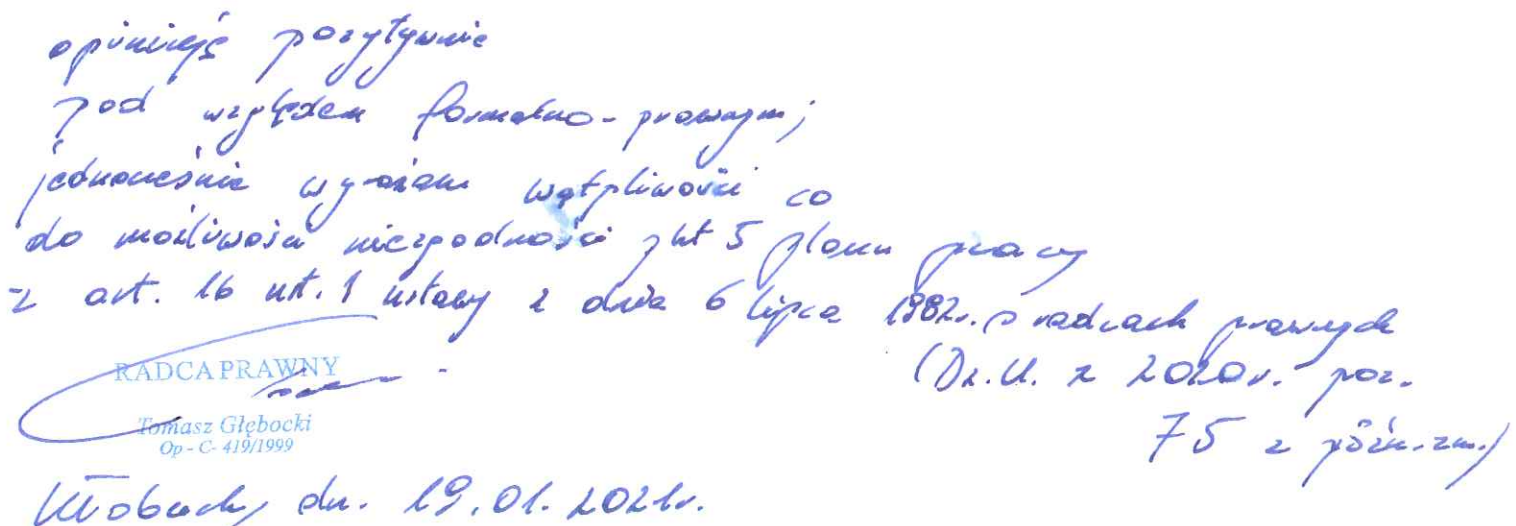 opiniuję pozytywnie
pod względem formalno-prawnym;
jednocześnie wyrażam wątpliwości co
do możliwości niezgodności pkt 5 planu pracy
z art. 16 ust. 1 ustawy z dnia 6 lipca 1982r. o radcach prawnych
(Dz.U. z 2020r. poz.
75 z późn.zm.)
RADCA PRAWNY
Tomasz Głębocki
Op - C- 419/1999
Kłobuck, dn. 19.01.2021r.